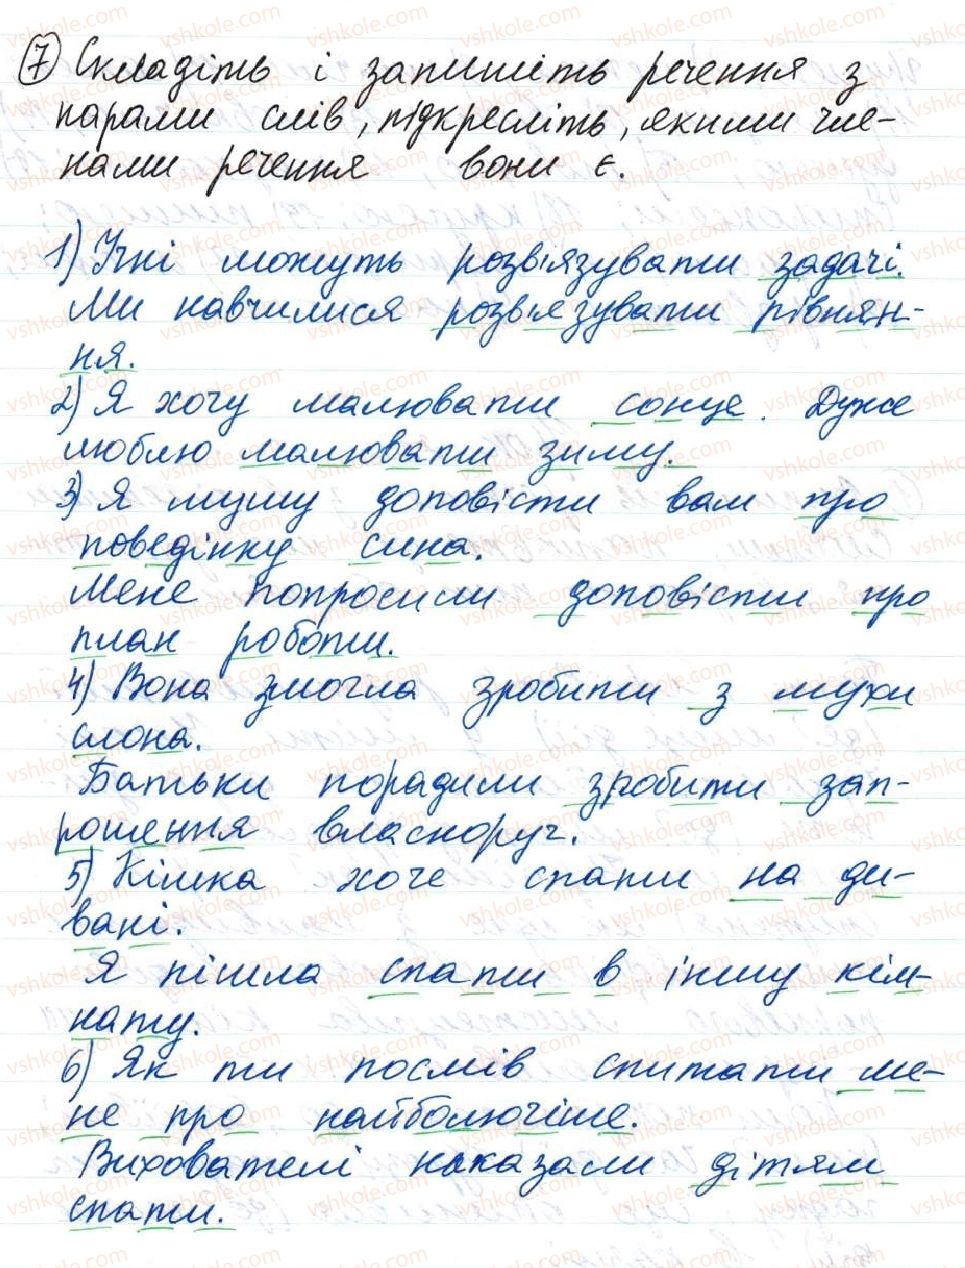 7 Складіть і запишіть речення з
парами слів, підкресліть, якими чле-
нами речення вони є.
1) Учні можуть розвіязувати задачі.
Ми навчилися розвіязувати рівнян-
ня.
2) Я хочу малювати сонце. Дуже
люблю малювати зиму.
3) Я мушу доповісти вам про
поведінку сина.
Мене попросили доповісти про
план роботи.
4) Вона змогла зробити з мухи
слона.
Батьки порадили зробити зап-
рошення власноруч.
5) Кішка хоче спати на ди-
вані.
Я пішла спати в іншу кім-
нату.
6) Як ти посмів спитати ме-
не про найболючіше.
Вихователі наказали дітям
спати.